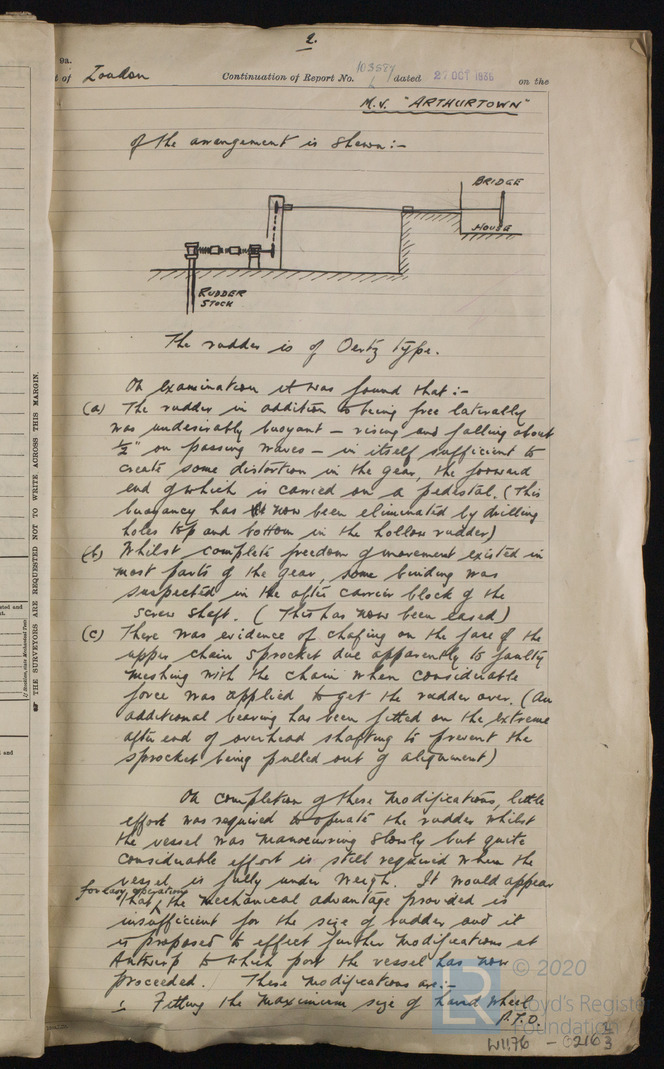 2.
9a.
t of London Continuation of Report No. 103587 dated 27 OCT 1936 on the
M.V. "ARTHURTOWN"
of the arrangement is shewn:-
BRIDGE
HOUSE
RUDDER
STOCK
The rudder is of Oertz type.
On examination it was found that:-
(a) The rudder in addition to being free laterally
was undesirably buoyant - rising and falling about
½" on passing waves - in itself sufficient to
create some distortion in the gear, the forward
end of which is carried on a pedestal. (This
buoyancy has now been eliminated by drilling
holes top and bottom in the hollow rudder)
(b) Whilst complete freedom of movement existed in
most parts of the gear, some binding was
suspected in the after carrier block of the
screw shaft. (This has now been eased)
(c) There was evidence of chafing on the face of the
upper chain sprocket due apparently to faulty
meshing with the chain when considerable
force was applied to get the rudder over. (An
additional bearing has been fitted on the extreme
after end of overhead shafting to prevent the
sprocket being pulled out of alignment)
On completion of these modifications, little
effort was required to operate the rudder whilst
the vessel was manoeuvring slowly but quite
considerable effort is still required when the
vessel is fully under weigh. It would appear
for easy operation
that ^ the mechanical advantage provided is
insufficient for the size of rudder and it
is proposed to effect further modifications at
Antwerp to which port the vessel has now
proceeded. These modifications are:-
1. Fitting the maximum size of hand wheel
P.T.O.
THE SURVEYORS ARE REQUESTED NOT TO WRITE ACROSS THIS MARGIN.
© 2020
Lloyd's Register
Foundation
W1176 - 0216 2/3